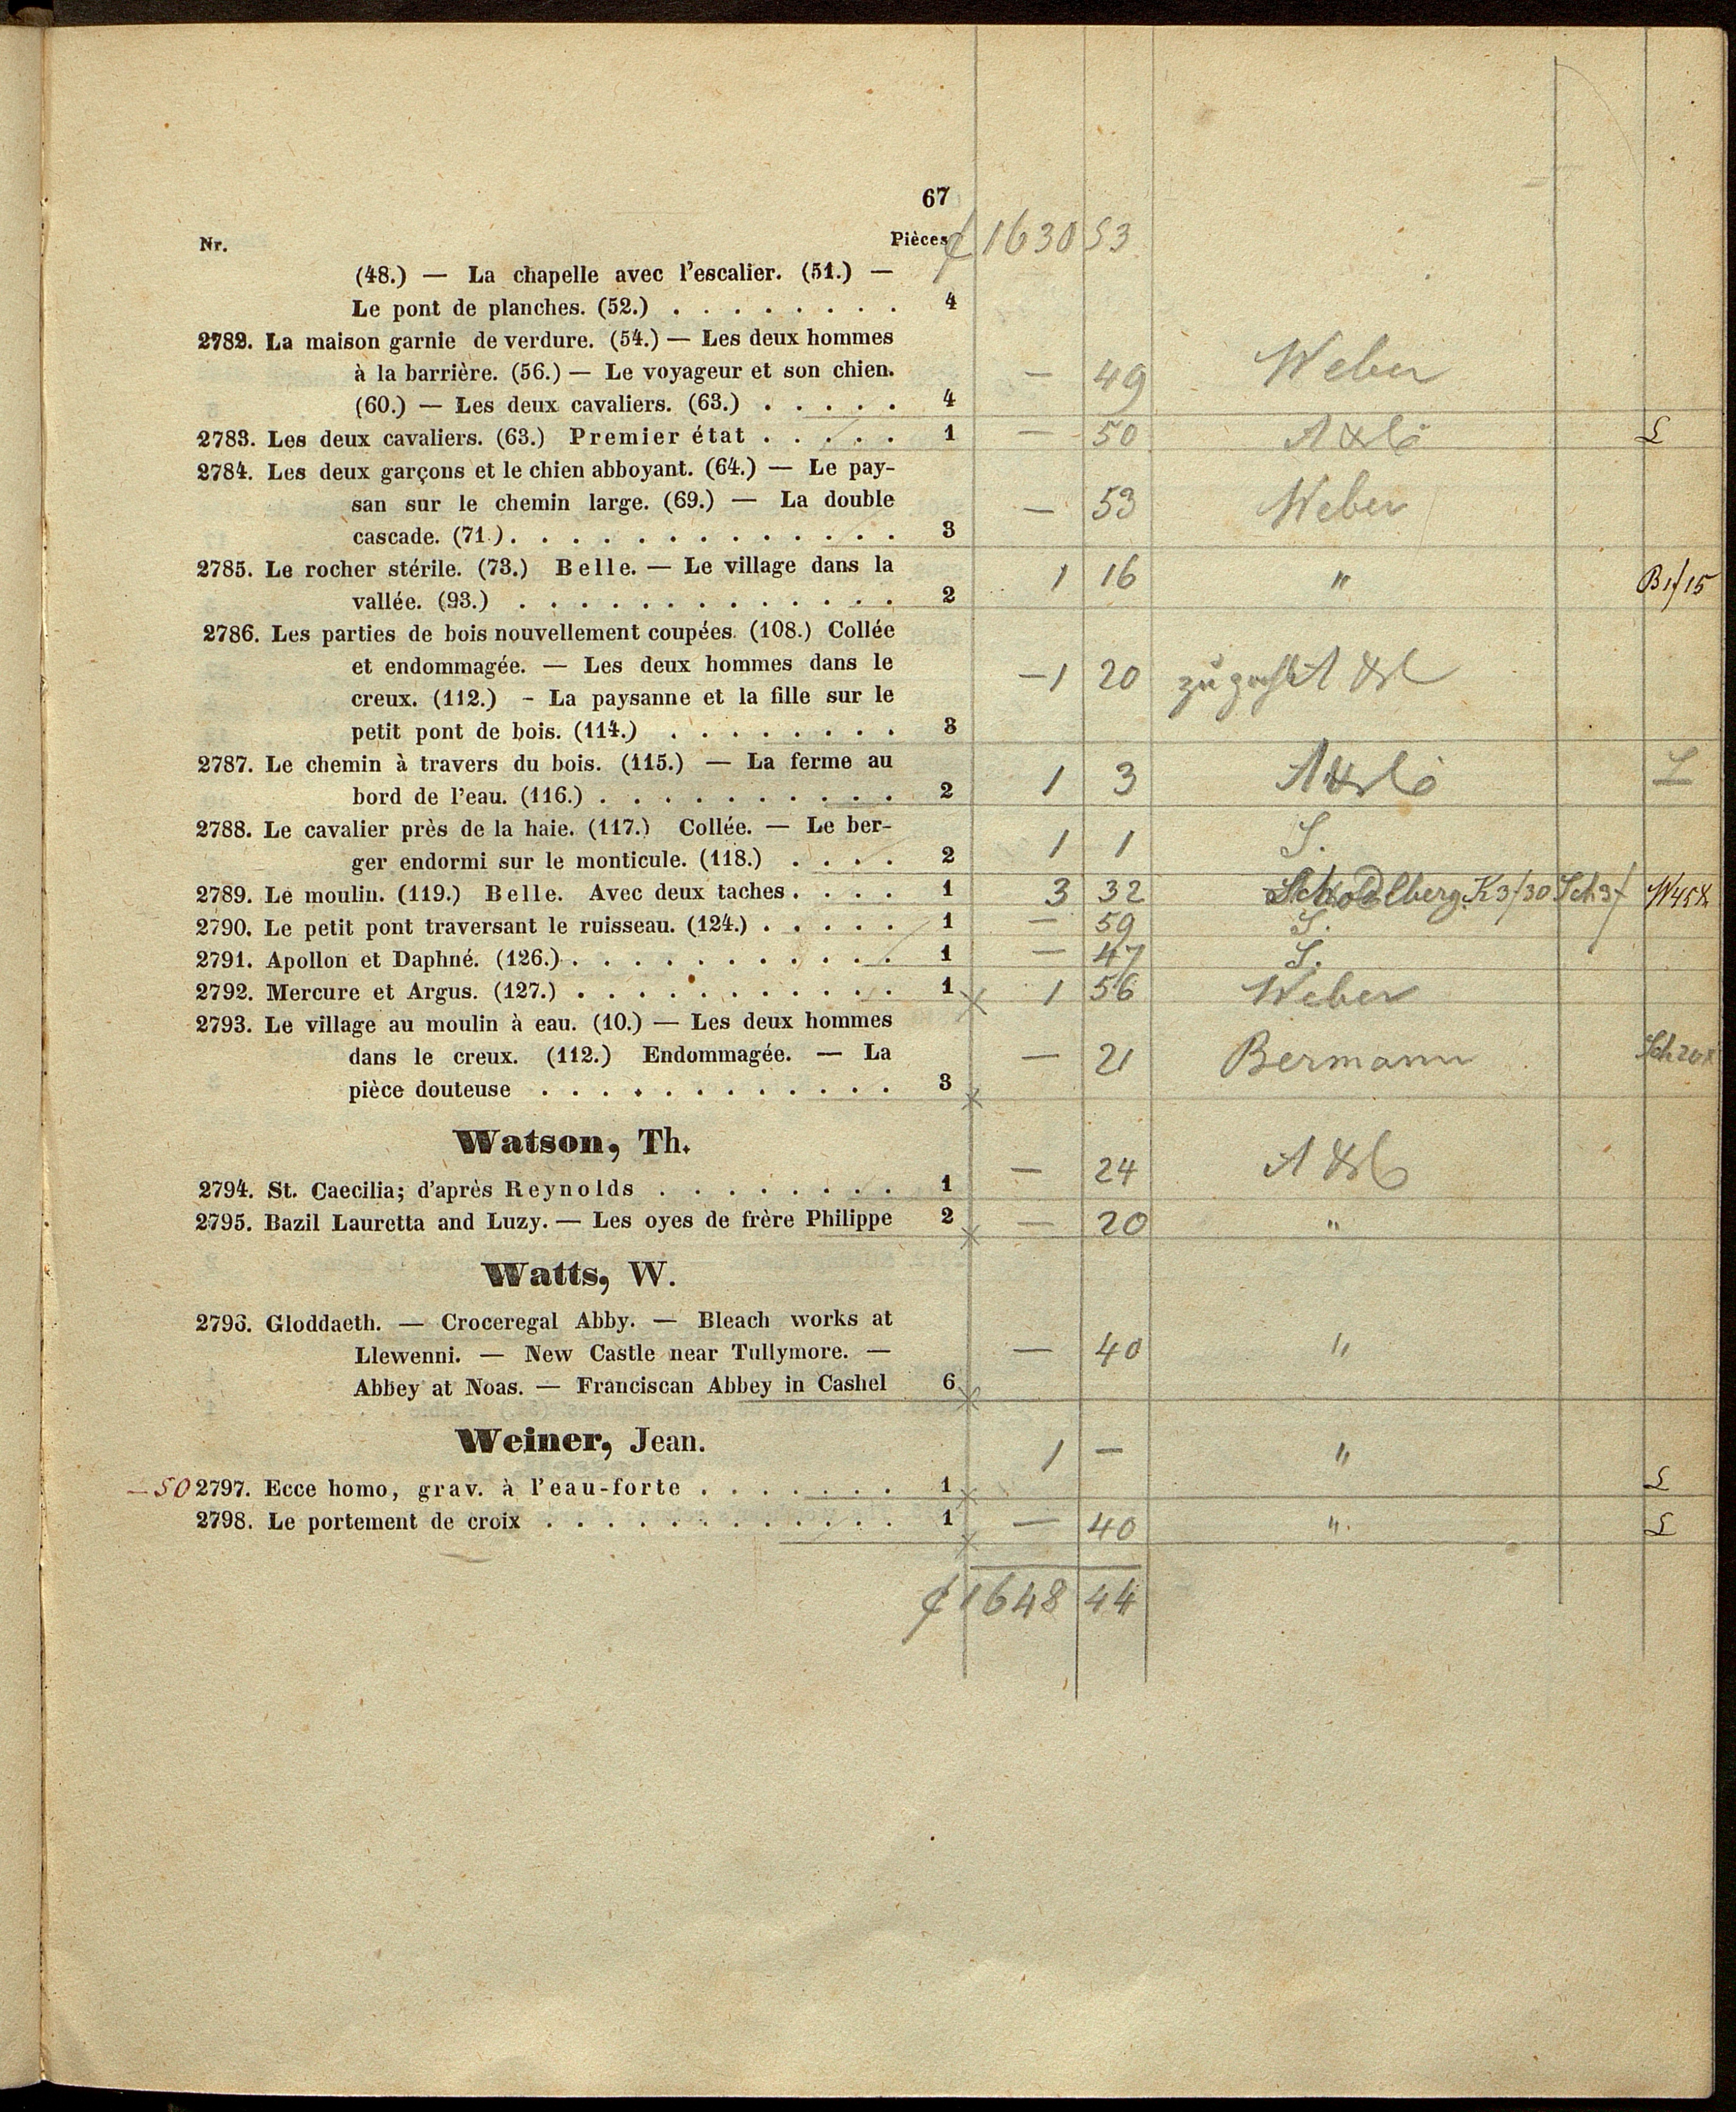 67
Nr. Pièces 1630 53
(48.) — La chapelle avec l'escalier. (51.) —
Le pont de planches. (52.) . . . . . . . . 4
2782. La maison garnie de verdure. (54.) — Les deux hommes
à la barrière. (56.) — Le voyageur et son chien.
(60.) — Les deux cavaliers. (63.) . . . . . 4 — 49 Weber
2783. Les deux cavaliers. (63.) Premier état . . . . . 1 — 50 L
2784. Les deux garçons et le chien abboyant. (64.) — Le pay-
san sur le chemin large. (69.) — La double
cascade. (71.) . . . . . . . . . . . . . 3 — 53 Weber
2785. Le rocher stérile. (73.) Belle. — Le village dans la
vallée. (93.) . . . . . . . . . . . . . 2 1 16 " B1f15
2786. Les parties de bois nouvellement coupées. (108.) Collée
et endommagée. — Les deux hommes dans le
creux. (112.) - La paysanne et la fille sur le
petit pont de bois. (114.) . . . . . . . . 3 —1 20
2787. Le chemin à travers du bois. (115.) — La ferme au
bord de l'eau. (116.) . . . . . . . . . . 2 1 3 L
2788. Le cavalier près de la haie. (117.) Collée. — Le ber-
ger endormi sur le monticule. (118.) . . . . 2 1 1 S.
2789. Le moulin. (119.) Belle. Avec deux taches . . . . 1 3 32 K3/30 Sch3f W45x
2790. Le petit pont traversant le ruisseau. (124.) . . . . . 1 — 59 S.
2791. Apollon et Daphné. (126.) . . . . . . . . . . . 1 — 47 S.
2792. Mercure et Argus. (127.) . . . . . . . . . . . 1 1 56 Weber
2793. Le village au moulin à eau. (10.) — Les deux hommes
dans le creux. (112.) Endommagée. — La
pièce douteuse . . . . . . . . . . . . 3 — 21 Bermann Sch20x
Watson, Th.
2794. St. Caecilia; d'après Reynolds . . . . . . . . 1 — 24
2795. Bazil Lauretta and Luzy. — Les oyes de frère Philippe 2 — 20 "
Watts, W.
2796. Gloddaeth. — Croceregal Abby. — Bleach works at
Llewenni. — New Castle near Tullymore. —
Abbey at Noas. — Franciscan Abbey in Cashel 6 — 40 "
Weiner, Jean.
—50 2797. Ecce homo, grav. à l'eau-forte . . . . . . . 1 1 — " L
2798. Le portement de croix . . . . . . . . . . . . 1 — 40 " L
1648 44